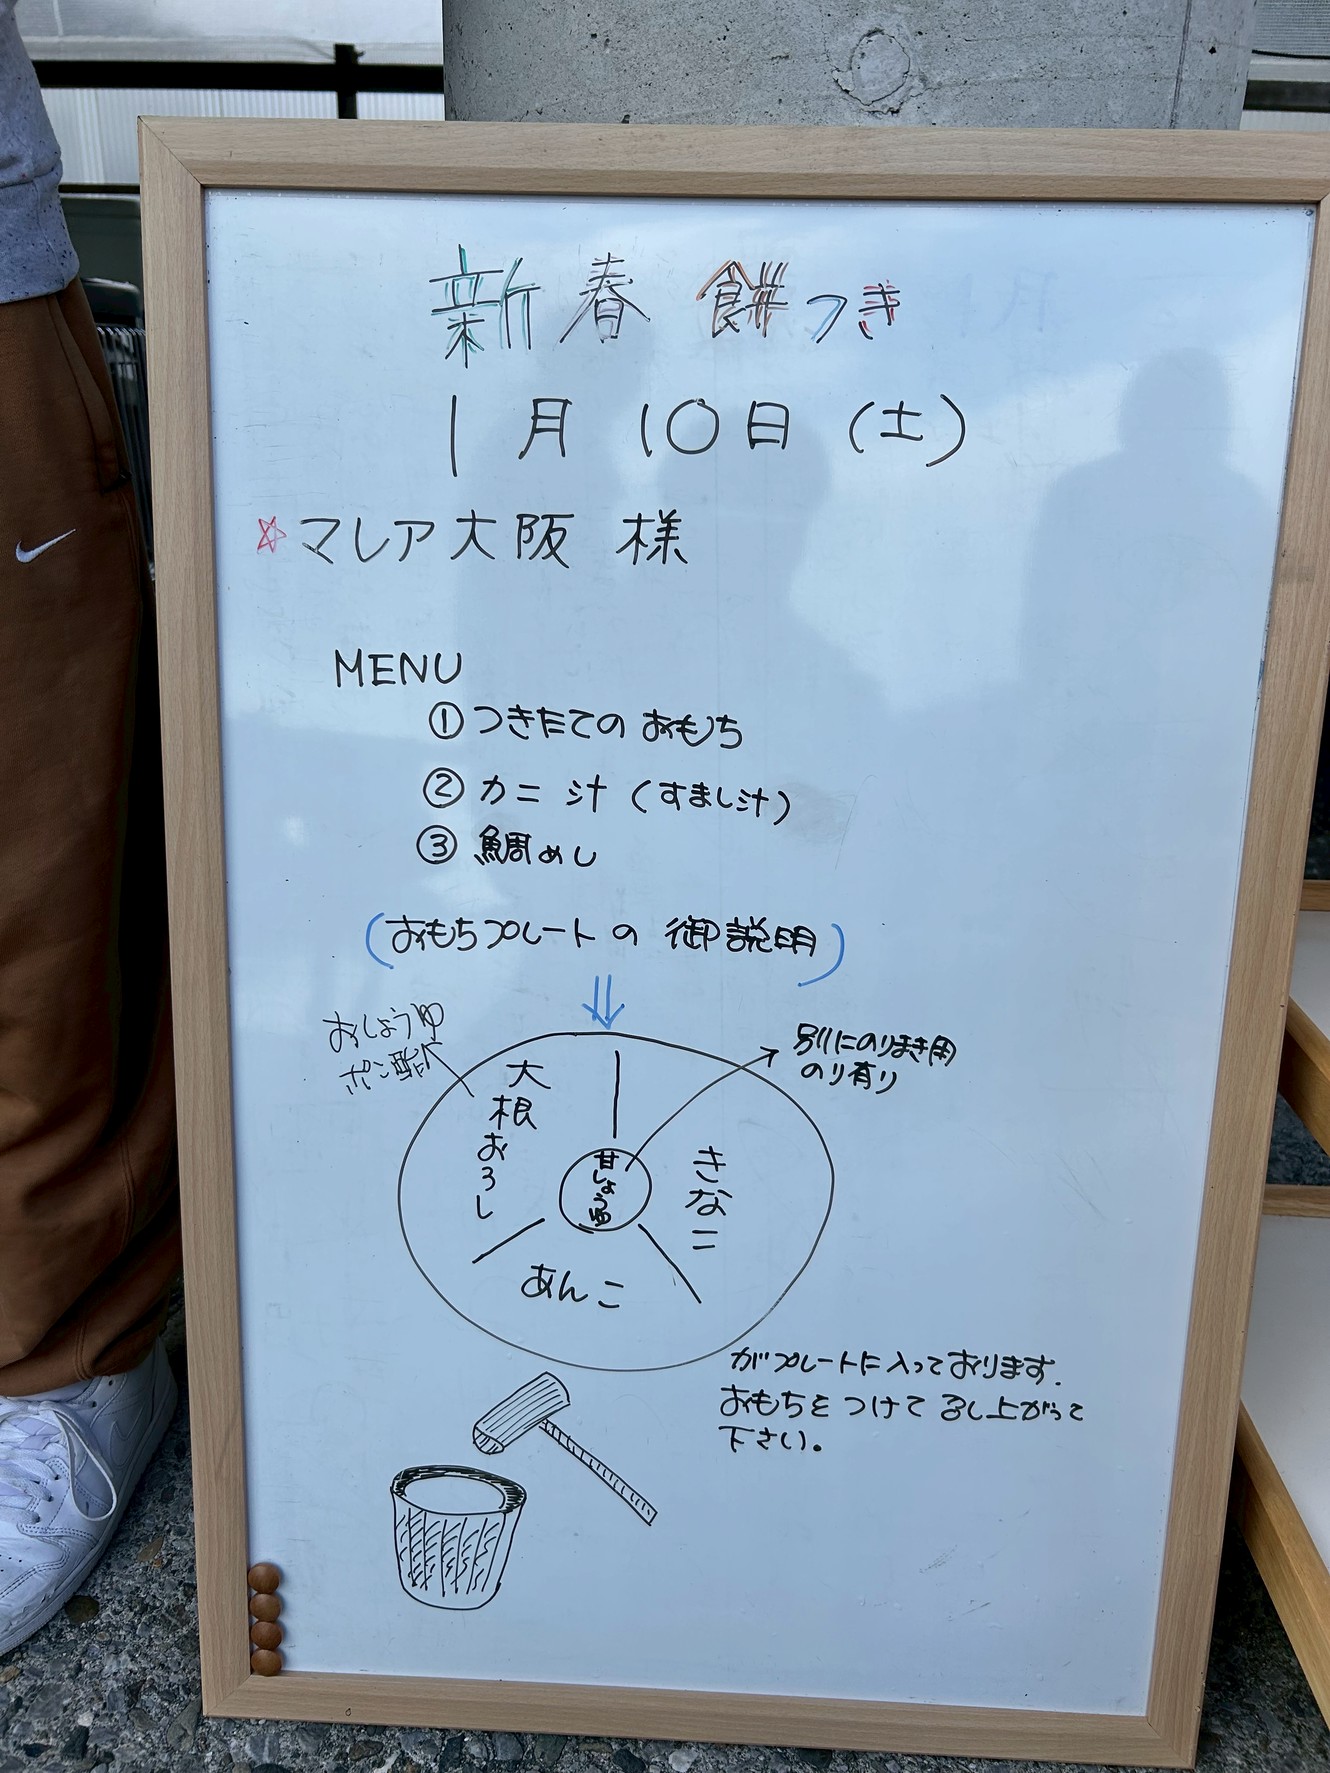 新春 餅つき
1月10日(土)
☆マレア大阪 様
MENU
①つきたての おもち
②カニ汁(すまし汁)
③鯛めし
(おもちプレートの御説明)
おしょうゆ
ポン酢
別にのりまき用
のり有り
大根おろし
甘しょうゆ
きなこ
あんこ
がプレートに入っております.
おもちをつけて召し上がって
下さい。